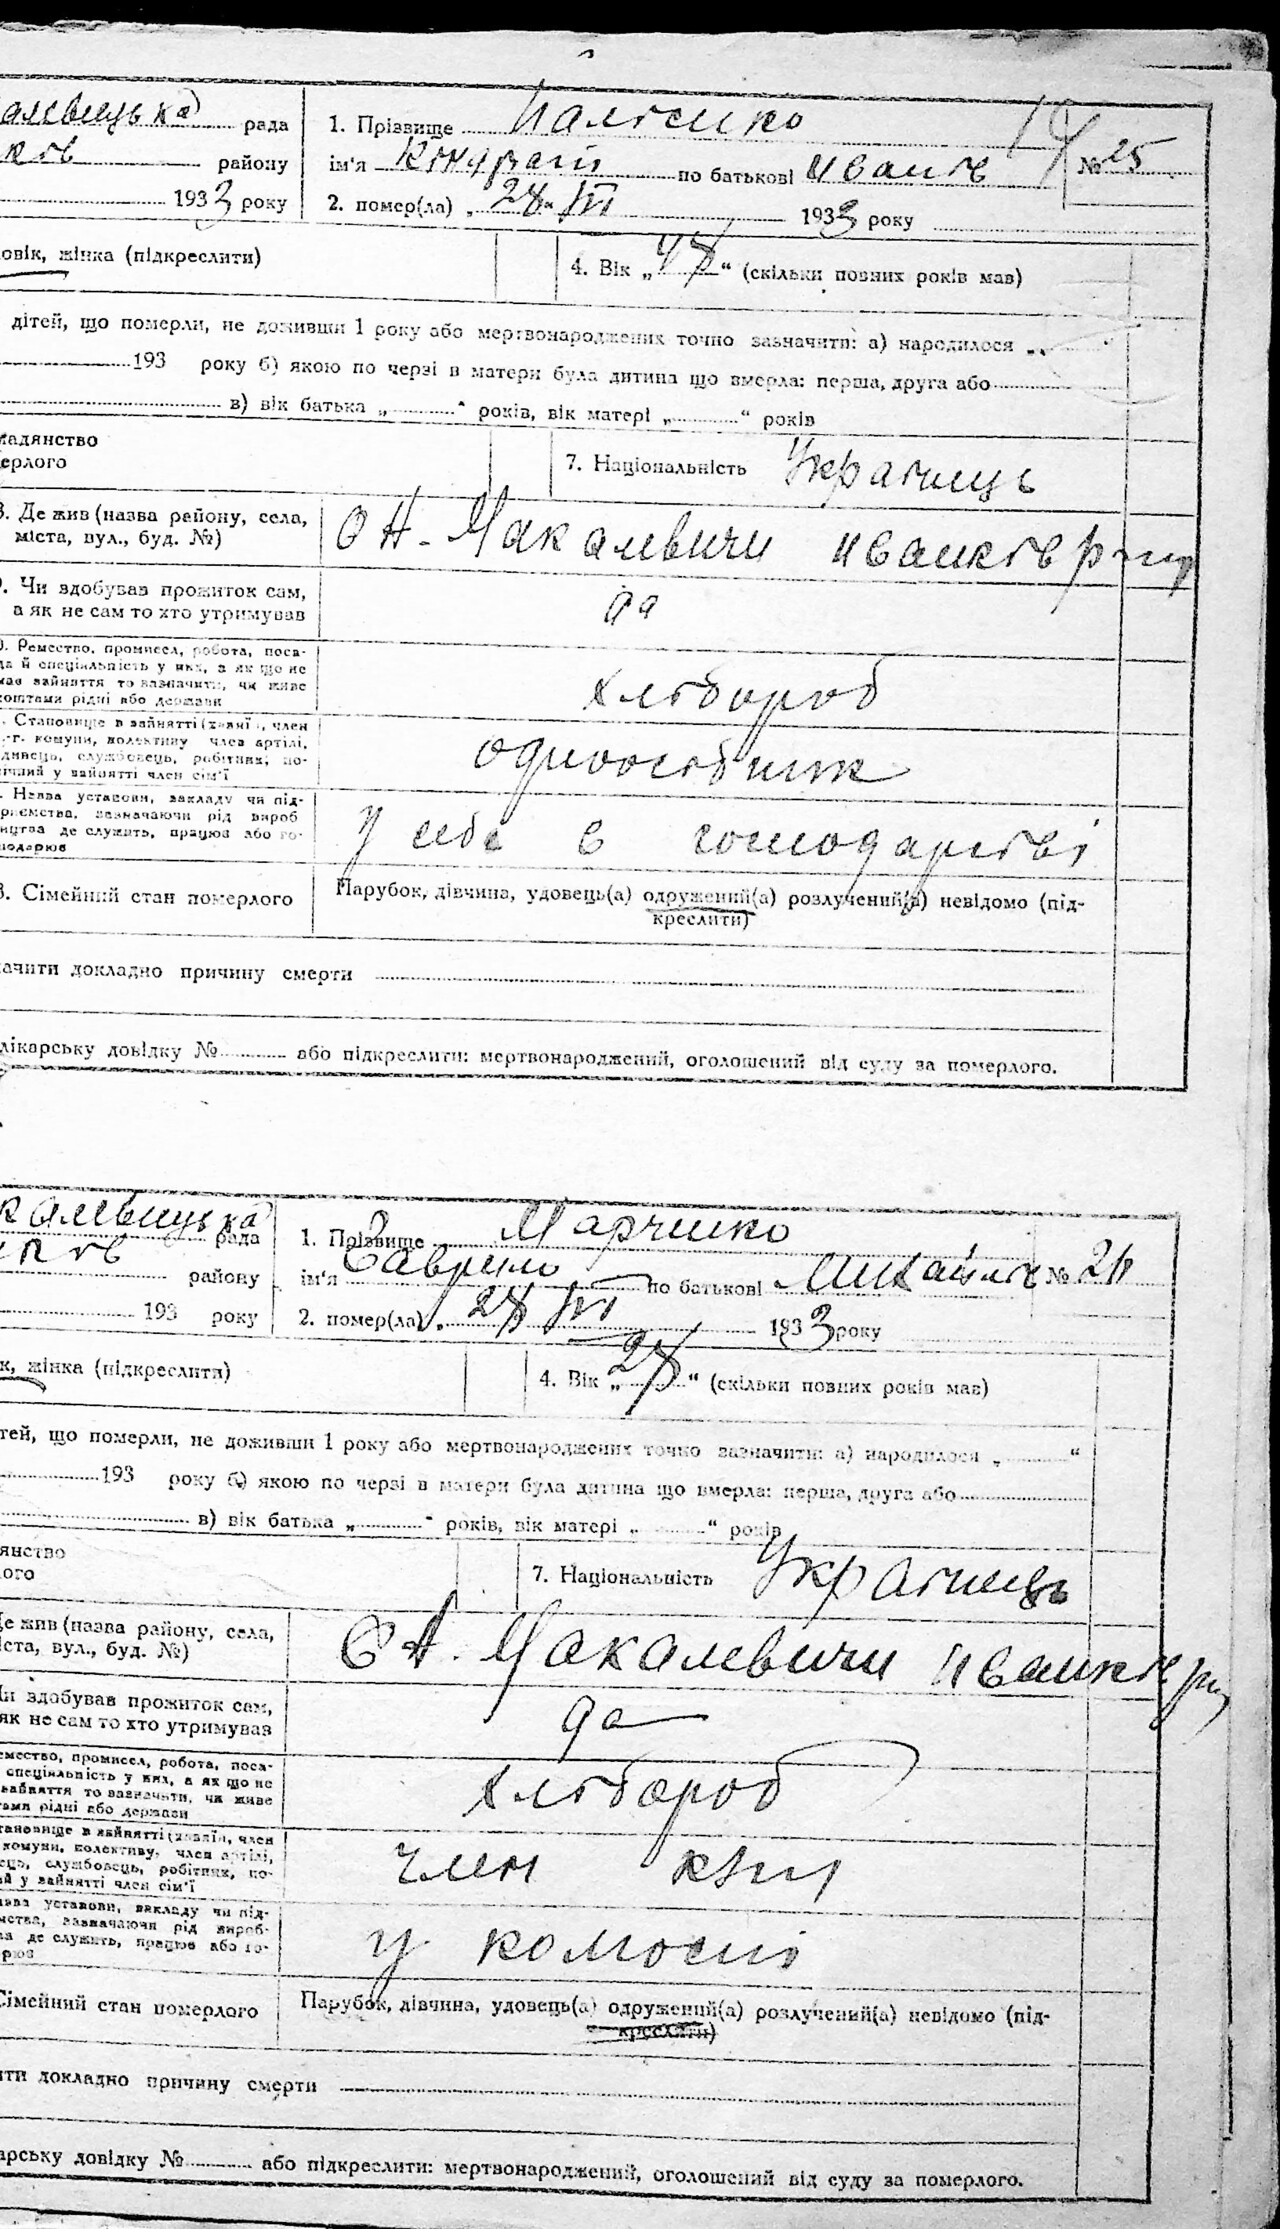 рада
району
1933 року
1. Прізвище
ім'я Кіндрат по батькові Иванів
№ 25
2. помер(ла) „ 28 III 1933 року
овік, жінка (підкреслити)
4. Вік „ “ (скільки повних років мав)
дітей, що померли, не доживши 1 року або мертвонароджених точно зазначити: а) народилося „ “
193 року б) якою по черзі в матери була дитина що вмерла: перша, друга або
в) вік батька „ “ років, вік матері „ “ років
мадянство
ерлого
7. Національність Українець
8. Де жив (назва району, села,
міста, вул., буд. №)
Макалевичи
9. Чи здобував прожиток сам,
а як не сам то хто утримував
да
0. Ремество, промисел, робота, поса-
да й спеціяльність у них, а як що не
мав зайняття то зазначити, чи живе
коштами рідні або держави
хлібороб
. Становище в зайнятті (хазяїн, член
с-г. комуни, колективу член артілі,
одинець, службовець, робітник, по-
мічний у зайнятті член сім'ї
одноосібник
. Назва установи, закладу чи під-
приємства, зазначаючи рід вироб
ництва де служить, працює або го-
подарює
у себе в господарстві
3. Сімейний стан померлого
Парубок, дівчина, удовець(а) одружений(а) розлучений(а) невідомо (під-
креслити)
ачити докладно причину смерти
лікарську довідку № або підкреслити: мертвонароджений, оголошений від суду за померлого.
калевицька рада
району
193 року
1. Прізвище Марченко
ім'я Гаврило по батькові Михайлів № 26
2. помер(ла) „ 28 III 1933 року
к, жінка (підкреслити)
4. Вік „ 28 “ (скільки повних років мав)
тей, що померли, не доживши 1 року або мертвонароджених точно зазначити: а) народилося „ “
193 року б) якою по черзі в матери була дитина що вмерла: перша, друга або
в) вік батька „ “ років, вік матері „ “ років
янство
ого
7. Національність Українець
Де жив (назва району, села,
іста, вул., буд. №)
Макалевичи
Чи здобував прожиток сам,
як не сам то хто утримував
да
емество, промисел, робота, поса-
спеціяльність у них, а як що не
зайняття то зазначити, чи живе
тами рідні або держави
хлібороб
тановище в зайнятті (хазяїн, член
комуни, колективу, член артілі,
ець, службовець, робітник, по-
ий у зайнятті член сім'ї
член
азва установи, закладу чи під-
мства, зазначаючи рід вироб-
ва де служить, працює або го-
рює
у
Сімейний стан померлого
Парубок, дівчина, удовець(а) одружений(а) розлучений(а) невідомо (під-
креслити)
ити докладно причину смерти
арську довідку № або підкреслити: мертвонароджений, оголошений від суду за померлого.